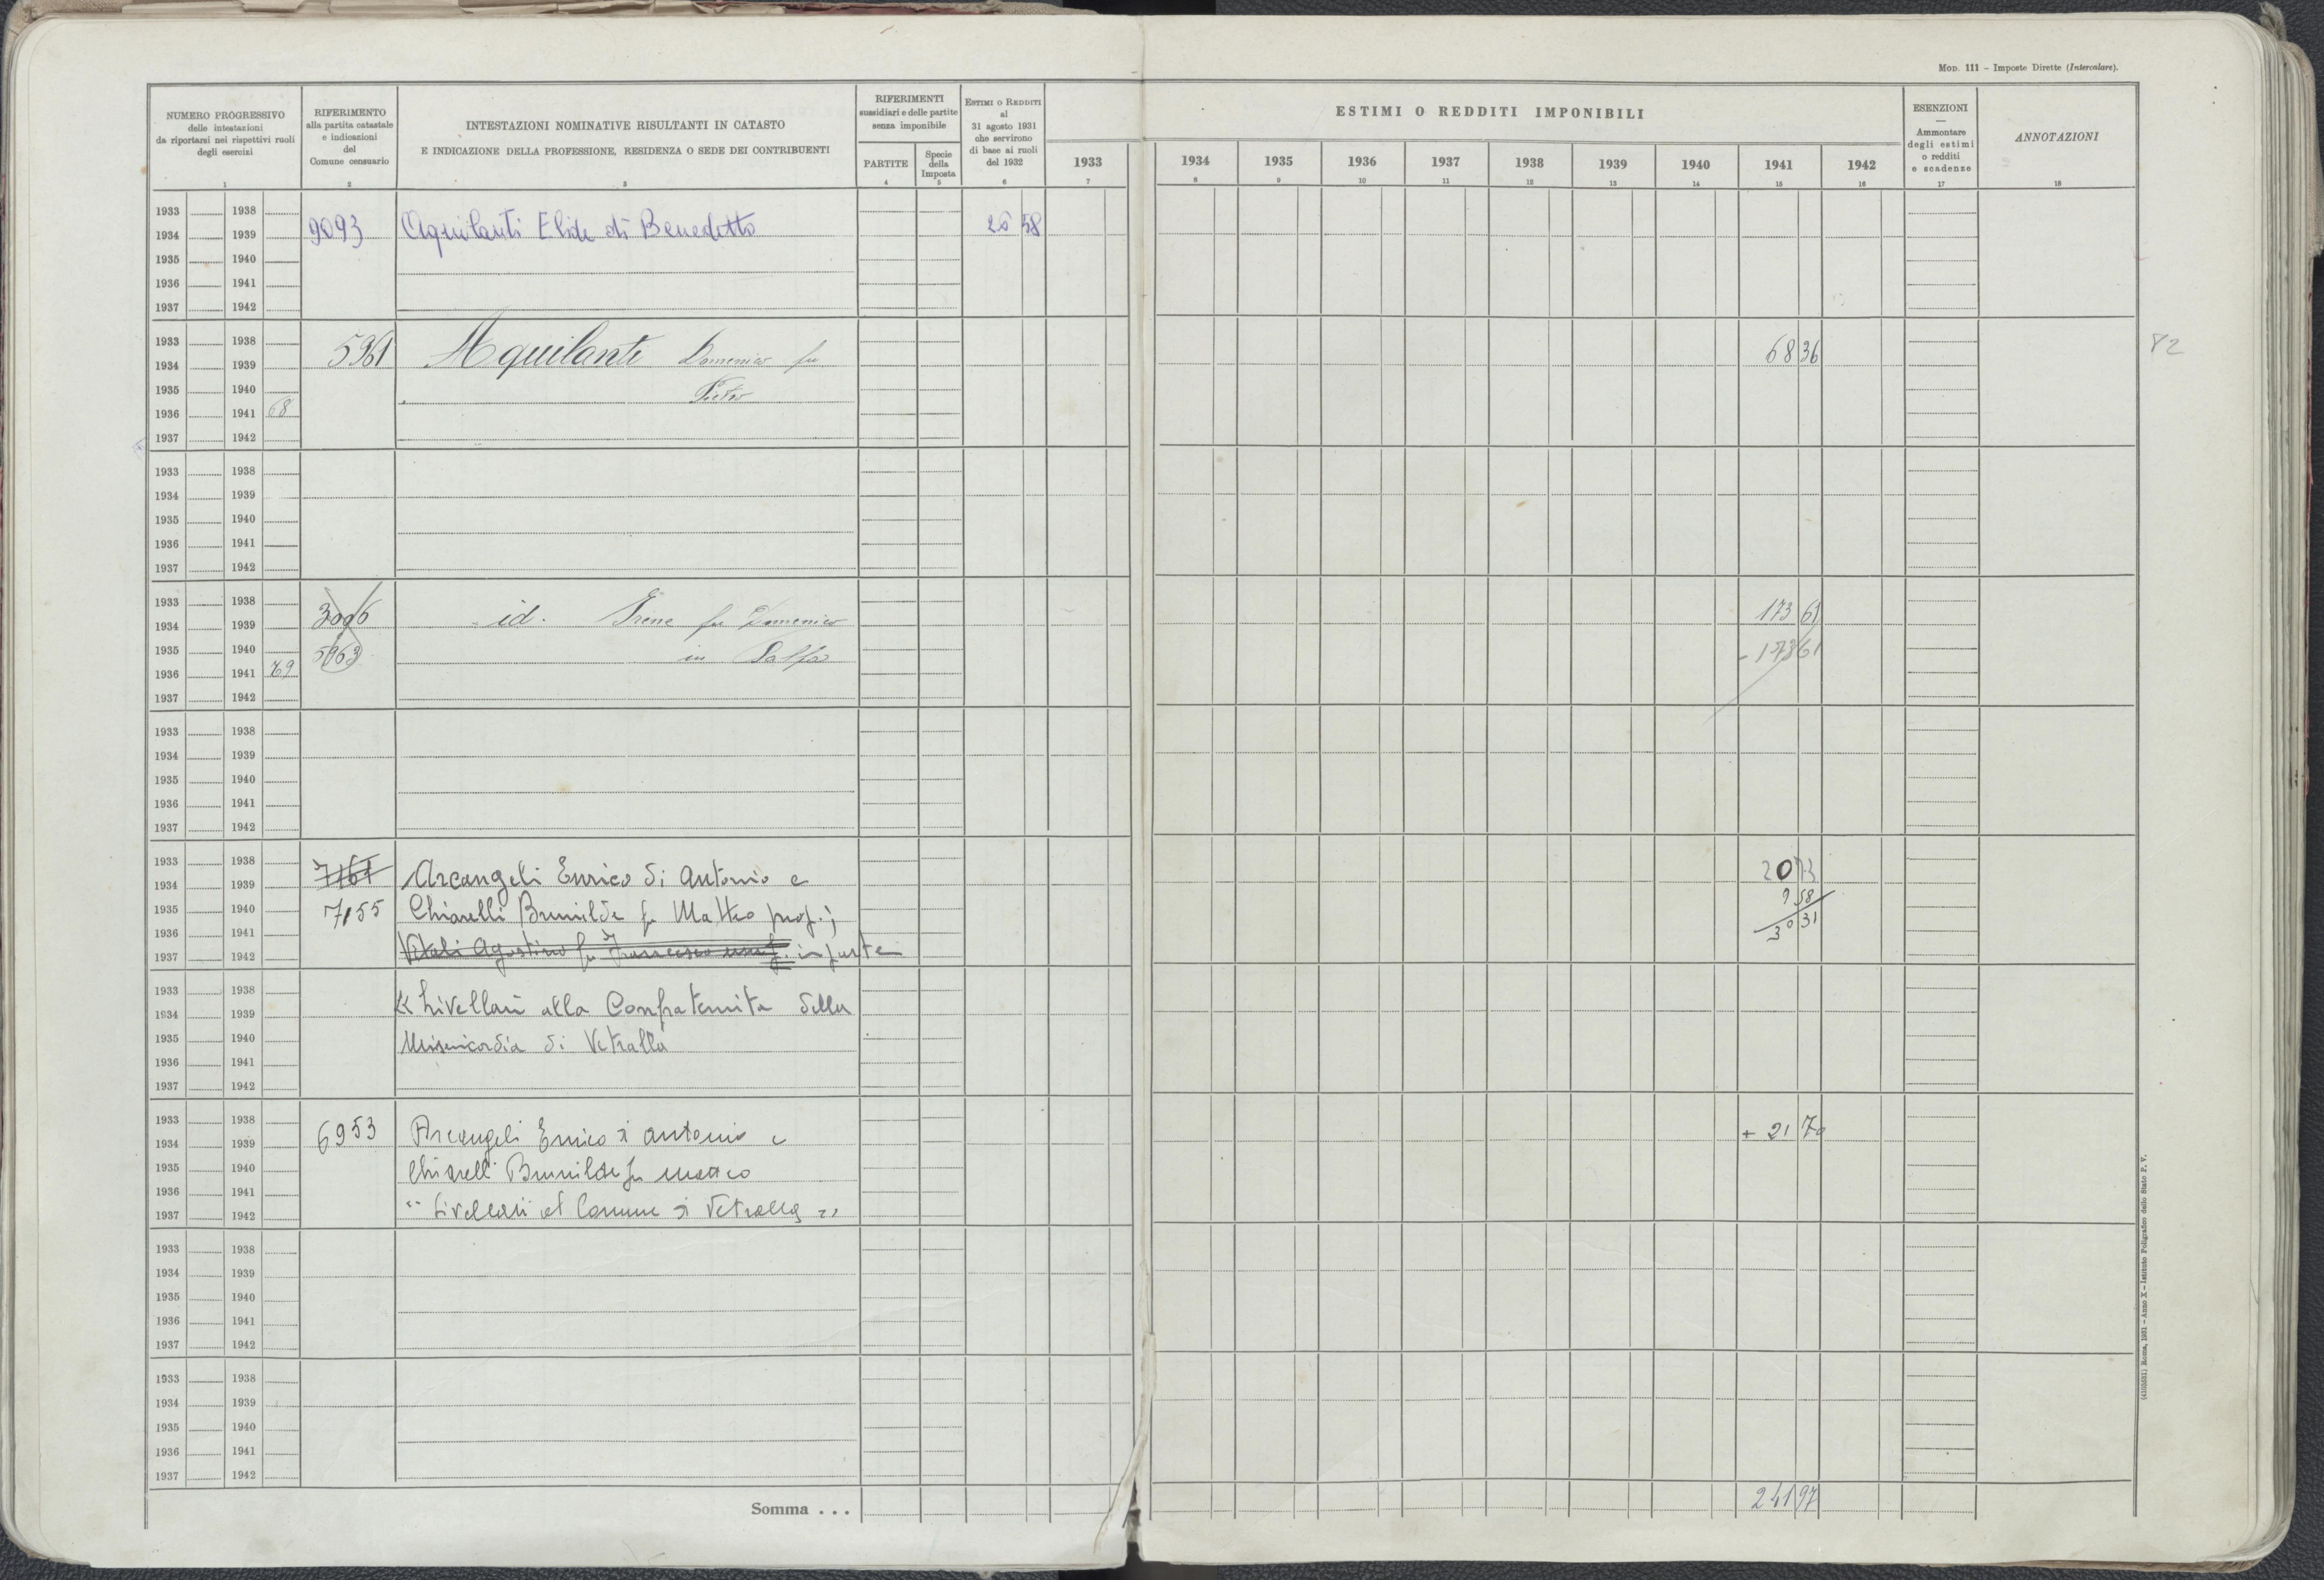 MOD. 111 – Imposte Dirette (Intercalare).
NUMERO PROGRESSIVO
delle intestazioni
da riportarsi nei rispettivi ruoli
degli esercizi
1
RIFERIMENTO
alla partita catastale
e indicazioni
del
Comune censuario
2
INTESTAZIONI NOMINATIVE RISULTANTI IN CATASTO
E INDICAZIONE DELLA PROFESSIONE, RESIDENZA O SEDE DEI CONTRIBUENTI
3
RIFERIMENTI
sussidiari e delle partite
senza imponibile
PARTITE
4
Specie
della
Imposta
5
ESTIMI O REDDITI
al
31 agosto 1931
che servirono
di base ai ruoli
del 1932
6
ESTIMI O REDDITI IMPONIBILI
1933 1934 1935 1936 1937 1938 1939 1940 1941 1942
7 8 9 10 11 12 13 14 15 16
ESENZIONI
—
Ammontare
degli estimi
o redditi
e scadenze
17
ANNOTAZIONI
18
1933 1938
1934 1939 9093 Aquilanti Elide di Benedetto 26 58
1935 1940
1936 1941
1937 1942
1933 1938
1934 1939 5961 Aquilanti Domenico fu 68 36 82
1935 1940 Pietro
1936 1941 68
1937 1942
1933 1938
1934 1939
1935 1940
1936 1941
1937 1942
1933 1938
1934 1939 3006 id. Irene fu Domenico 173 61
1935 1940 5963 in Palfo - 173 61
1936 1941 69
1937 1942
1933 1938
1934 1939
1935 1940
1936 1941
1937 1942
1933 1938
1934 1939 7161 Arcangeli Enrico di Antonio e 20 73
1935 1940 7155 Chiarelli Brunilde fu Matteo prop.; 9 58
1936 1941 30 31
1937 1942 Vitali Agostino fu Francesco usuf. in parte
1933 1938
1934 1939 « Livellari alla Confraternita della
1935 1940 Misericordia di Vetralla
1936 1941
1937 1942
1933 1938
1934 1939 6953 Arcangeli Enrico di Antonio e + 21 70
1935 1940 Chiarelli Brunilde fu Matteo
1936 1941
1937 1942 " Livellari al Comune di Vetralla "
1933 1938
1934 1939
1935 1940
1936 1941
1937 1942
1933 1938
1934 1939
1935 1940
1936 1941
1937 1942
Somma . . . 241 97
(4103631) Roma, 1931 – Anno X – Istituto Poligrafico dello Stato P. V.